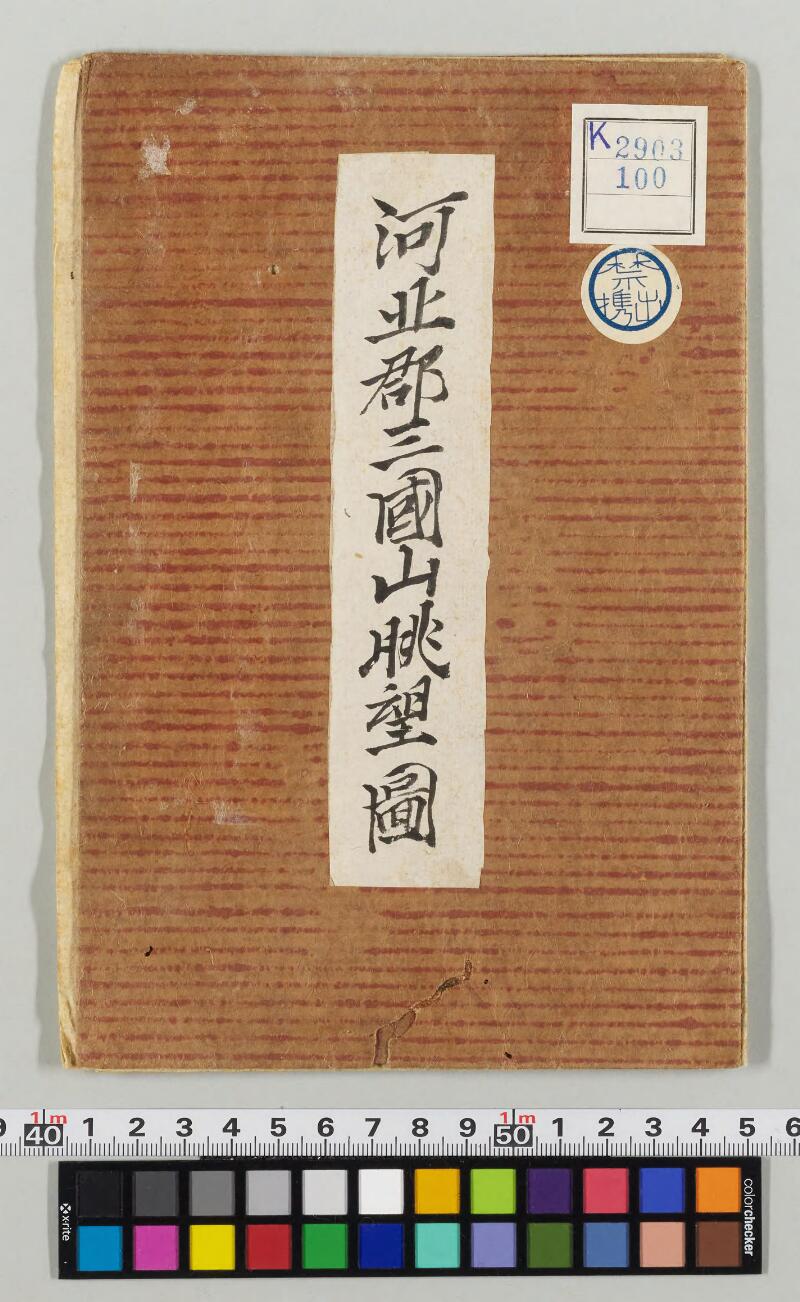 河北郡三國山眺望圖
K2903
100
禁
携出
9 1m 40 1 2 3 4 5 6 7 8 9 1m 50 1 2 3 4 5 6
x-rite
colorchecker